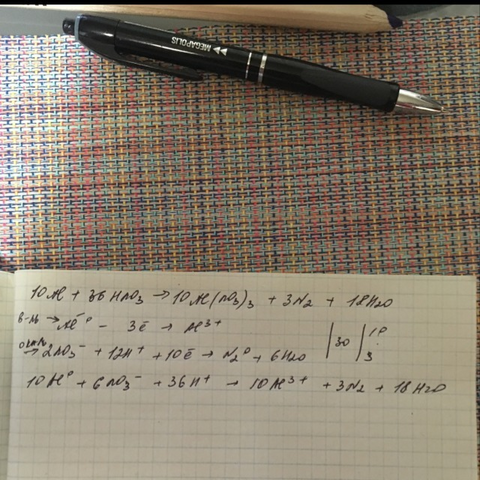 MEGAPOLIS
10Al + 36HNO3 → 10Al(NO3)3 + 3N2 + 18H2O
в-ль → Al⁰ - 3ē → Al³⁺
окисл → 2NO3⁻ + 12H⁺ + 10ē → N2⁰ + 6H2O |30| 10 3
10Al⁰ + 6NO3⁻ + 36H⁺ → 10Al³⁺ + 3N2 + 18H2O